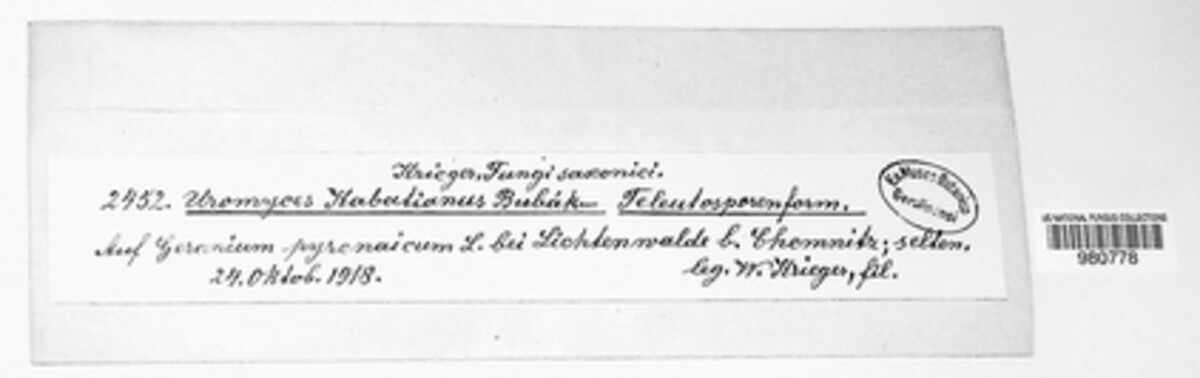 Krieger, Fungi saxonici.
2452. Uromyces Kabatianus Bubák — Teleutosporenform.
Auf Geranium pyrenaicum L. bei Lichtenwalde b. Chemnitz; selten.
24. Oktob. 1918. leg. W. Krieger, fil.
Ex Museo Botanico
Berolinensi
US NATIONAL FUNGUS COLLECTIONS
980778